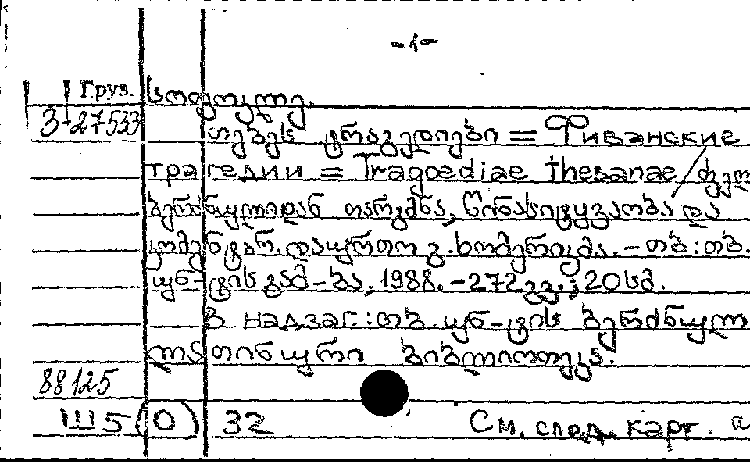 -1-
Груз. სოფოკლე.
3-27533 თებეს ტრაგედიები = Фиванские
трагедии = Tragoediae thebanae / ძველ
ბერძნულიდან თარგმნა, წინასიტყვაობა და
კომენტარ. დაურთო გ. ხომერიკმა. – თბ.: თბ.
უნ-ტის გამ-ბა, 1988. – 272 გვ.; 20 სმ.
В надзаг.: თბ. უნ-ტის ბერძნულ
ლათინური ბიბლიოთეკა.
88125
Ш5(0) 32 См. след. карт. а